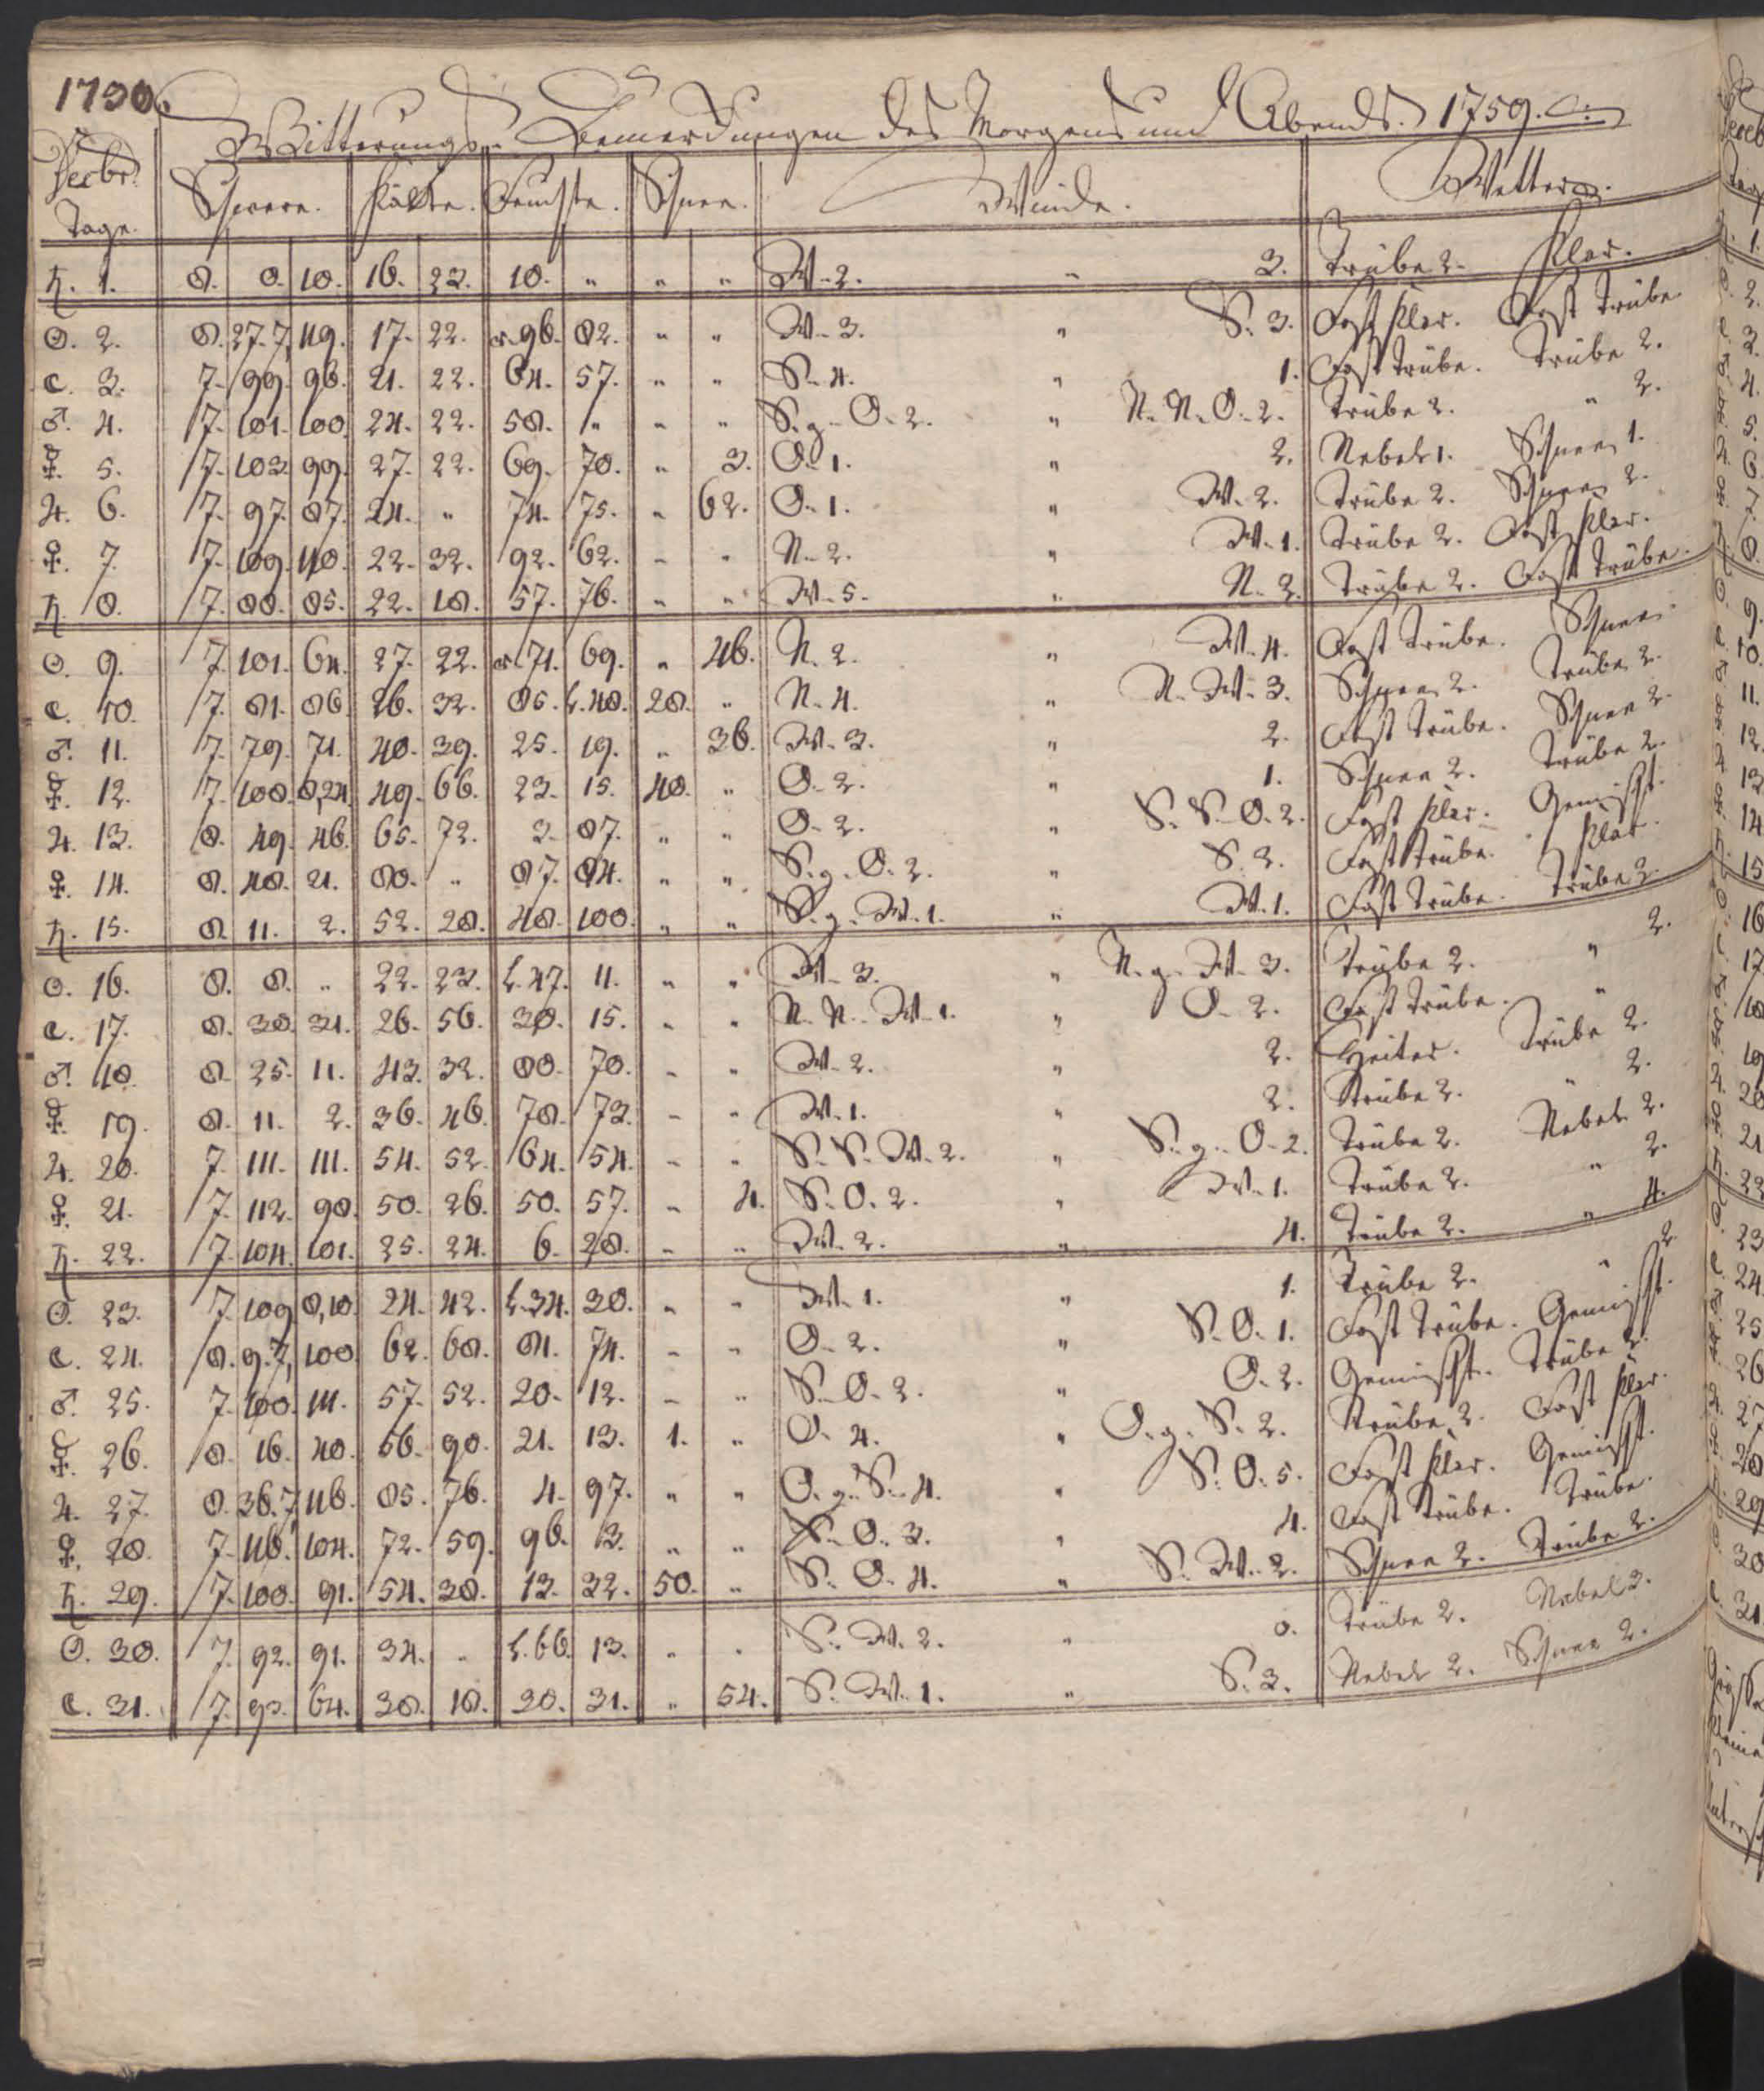 1730.
Witterungs-Bemerckungen des Morgens und Abends. 1759.
Decbr.
Tage. Schwere. Kälte. Feuchte. Schnee. Winde. Wetter.
♄. 1. 8. 8. 10. 16. 23. 10. " " " W. 2. " 3. Trübe 2. Klar.
☉. 2. 8. 27. 7, 119. 17. 22. r. 96. 82. " " W. 3. " S. 3. Fast Klar. Fast Trübe
☾. 3. 7. 99. 96. 21. 22. 64. 57. " " S. 4. " 1. Fast Trübe. Trübe 2.
♂. 4. 7. 101. 100. 24. 22. 58. " " " S. g. O. 2. " N. N. O. 2. Trübe 2. " 2.
☿. 5. 7. 103. 99. 27. 22. 69. 70. " 3. O. 1. " 2. Nebel 1. Schnee 1.
♃. 6. 7. 97. 87. 24. " 74. 75. " 62. O. 1. " W. 2. Trübe 2. Schnee 2.
♀. 7. 7. 109. 110. 22. 32. 92. 62. " " N. 2. " W. 1. Trübe 2. Fast Klar.
♄. 8. 7. 88. 85. 22. 18. 57. 76. " " W. 5. " N. 2. Trübe 2. Fast Trübe.
☉. 9. 7. 101. 64. 27. 22. r. 71. 69. " 46. N. 2. " W. 4. Fast Trübe. Schnee
☾. 10. 7. 81. 86. 26. 32. 85. l. 48. 28. " N. 4. " N. W. 3. Schnee 2. Trübe 2.
♂. 11. 7. 79. 71. 40. 39. 25. 19. " 36. W. 3. " 2. Fast Trübe. Schnee 2.
☿. 12. 7. 108. 8, 24. 49. 66. 23. 15. 48. " O. 2. " 1. Schnee 2. Trübe 2.
♃. 13. 8. 49. 46. 65. 72. 3. 87. " " O. 2. " S. S. O. 2. Fast Klar. Gemischt.
♀. 14. 8. 48. 21. 80. " 87. 84. " " S. g. O. 2. " S. 2. Fast Trübe. Klar.
♄. 15. 8. 11. 2. 52. 28. 48. 100. " " S. g. W. 1. " W. 1. Fast Trübe. Trübe 2.
☉. 16. 8. 8. " 22. 23. l. 47. 11. " " W. 3. " N. g. W. 3. Trübe 2. " 2.
☾. 17. 8. 30. 31. 26. 56. 30. 15. " " N. N. W. 1. " O. 2. Fast Trübe. "
♂. 18. 8. 25. 11. 43. 32. 88. 70. " " W. 2. " 2. Heiter. Trübe 2.
☿. 19. 8. 11. 2. 36. 46. 78. 73. " " W. 1. " 2. Trübe 2. " 2.
♃. 20. 7. 111. 111. 54. 52. 64. 54. " " S. S. W. 2. " S. g. O. 2. Trübe 2. Nebel 2.
♀. 21. 7. 112. 98. 50. 26. 50. 57. " 4. S. O. 2. " W. 1. Trübe 2. " 2.
♄. 22. 7. 104. 101. 25. 24. 6. 28. " " W. 2. " 4. Trübe 2. " 4.
☉. 23. 7. 109. 8, 10. 24. 42. l. 34. 30. " " W. 1. " 1. Trübe 2. " 2
☾. 24. 8. 9. 7, 100. 62. 68. 81. 74. " " O. 2. " S. O. 1. Fast Trübe. Gemischt.
♂. 25. 7. 100. 111. 57. 52. 20. 12. " " S. O. 2. " O. 2. Gemischt. Trübe 2.
☿. 26. 8. 16. 40. 56. 90. 21. 13. 1. " O. 4. " O. g. S. 2. Trübe 2. Fast Klar.
♃. 27. 8. 36. 7, 116. 85. 76. 4. 97. " " O. g. S. 4. " S. O. 5. Fast Klar. Gemischt.
♀. 28. 7. 116. 104. 72. 59. 96. 3. " " S. O. 3. " 4. Fast Trübe. Trübe
♄. 29. 7. 100. 91. 54. 38. 13. 32. 50. " S. O. 4. " S. W. 2. Schnee 2. Trübe 2.
☉. 30. 7. 92. 91. 34. " l. 66. 13. " " S. W. 2. " 0. Trübe 2. Nebel 3.
☾. 31. 7. 93. 64. 38. 18. 20. 31. " 54. S. W. 1. " S. 3. Nebel 2. Schnee 2.